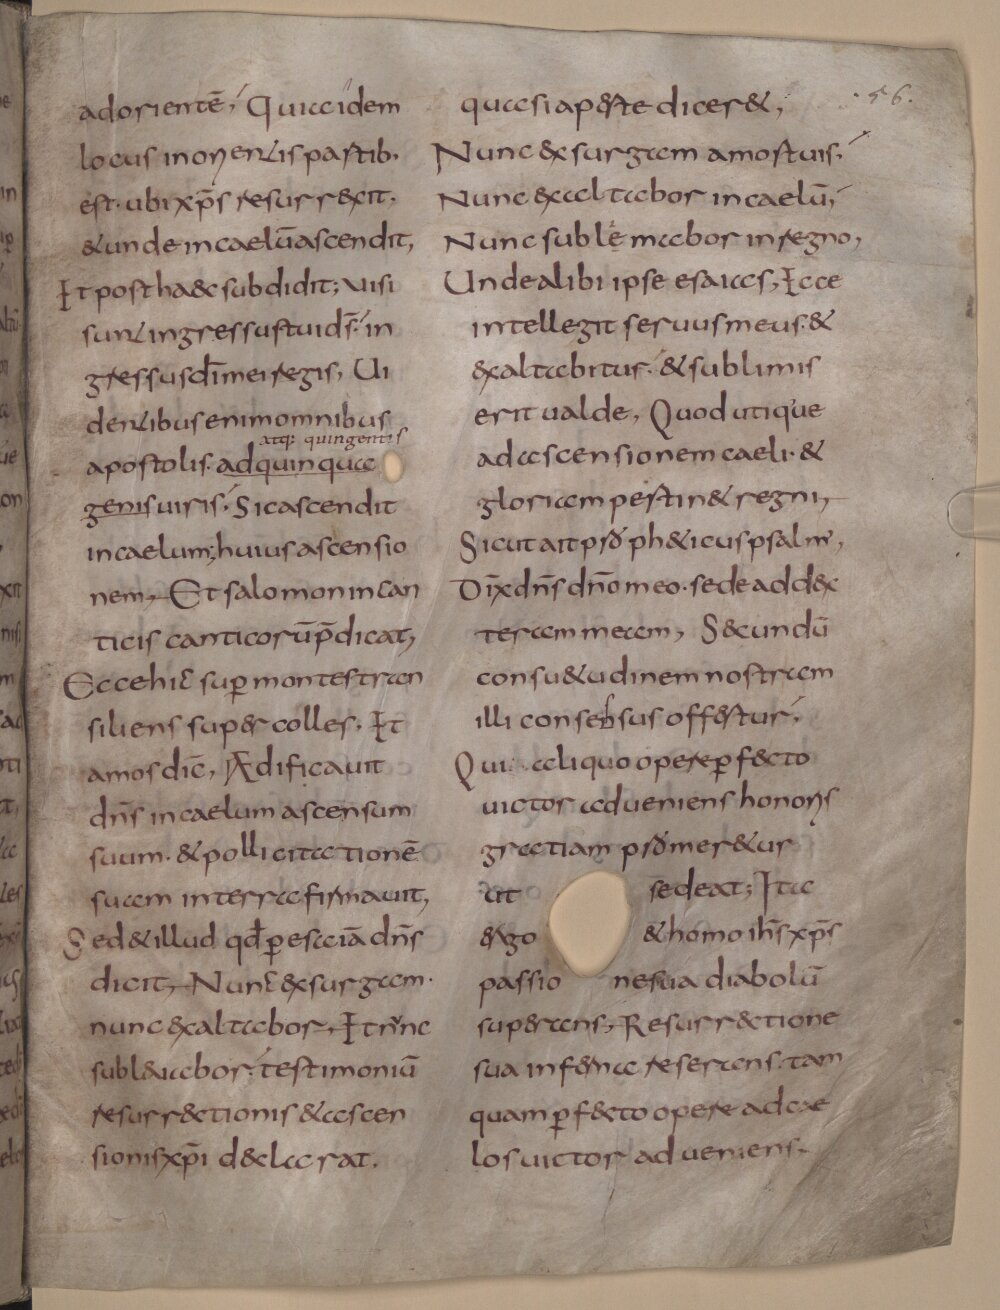 .56.
ad orientē; Qui& idem
locus in orientis partib;
est. ubi xp̄s resurrexit.
& unde in caelū ascendit,
Et post haec subdidit; Visi
sunt ingressus tui ds̄. in
gressus dī mei regis, Vi
dentibus enim omnibus
atq; quingentis
apostolis. ad quinqua
genis uiris. Sic ascendit
in caelum; huius ascensio
nem, Et salomon in can
ticis canticorū p̄dicat,
Ecce hic sup montes tran
siliens super colles. Et
amos dic̄, Ædificauit
dn̄s in caelum ascensum
suum. & pollicitationē
suam in terra firmauit,
Sed & illud qd̄ p esaiā dn̄s
dicit, Nunc exsurgam.
nunc exaltabor, Et nunc
subleuabor. testimoniū
resurrectionis & ascen
sionis xp̄i declarat.
quasi aperte diceret,
Nunc exsurgam a mortuis.
Nunc exaltabor in caelū,
Nunc sublemabor in regno,
Unde alibi ipse esaias, Ecce
intelleget seruus meus. &
exaltabitur. & sublimis
erit ualde, Quod utique
ad ascensionem caeli. &
gloriam pertinet regni,
Sicut ait propheticus psalm,
Dix dn̄s dn̄o meo. sede ad dex
teram meam, Secundū
consuetudinem nostram
illi consessus offertur,
Qui aliquo opere perfecto
uictor adueniens honoris
gratiam promeretur
ut sedeat; Ita
ergo & homo ihs̄ xp̄s
passione sua diabolū
superans, Resurrectione
sua inferna reserans. tam
quam p fecto opere ad cae
los uictor adueniens.